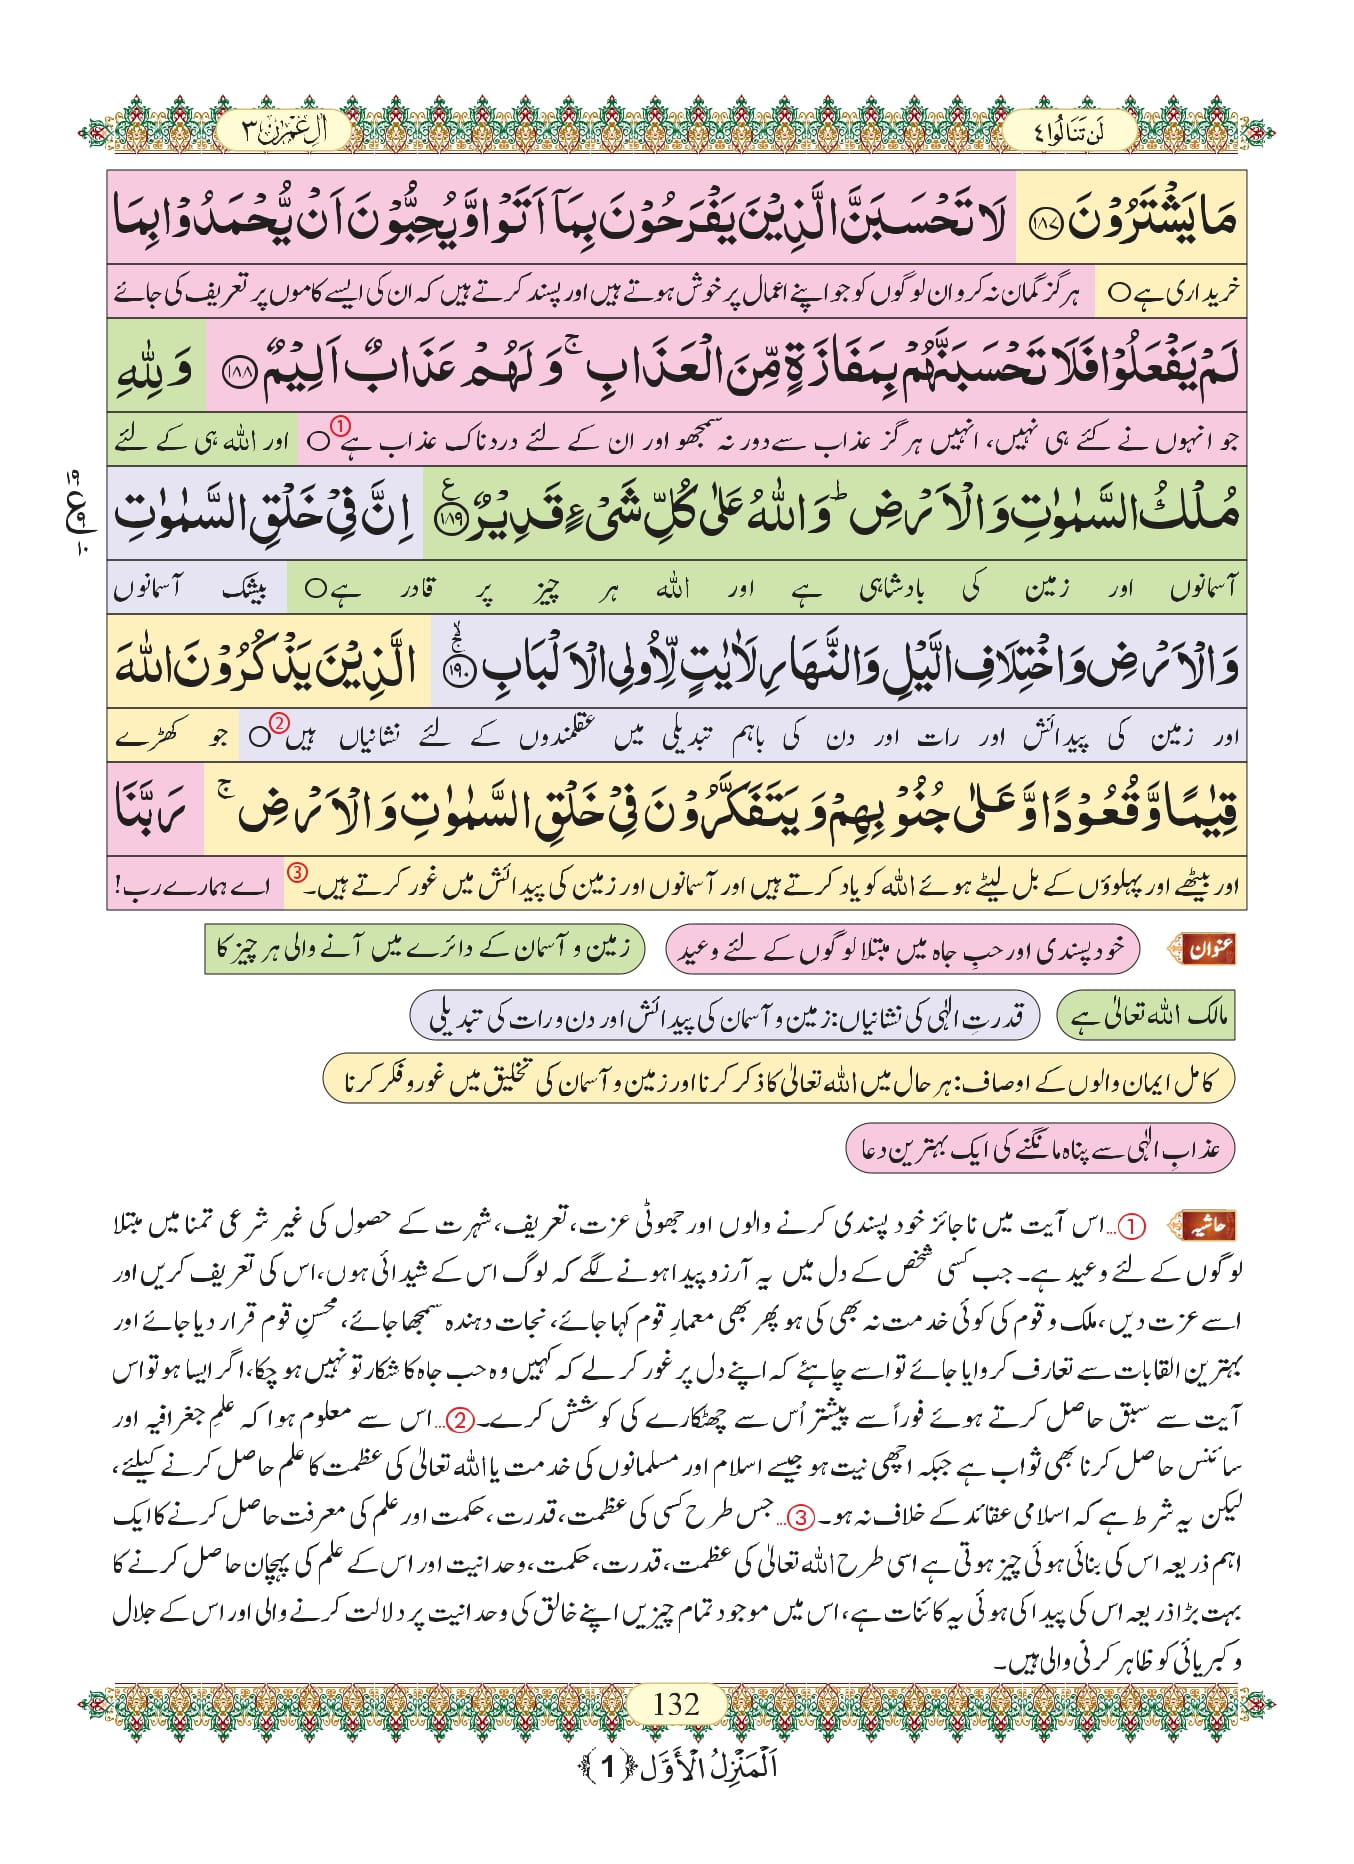 لَنْ تَنَالُوا ٤
اٰلِ عِمْرٰن ٣
مَا یَشْتَرُوْنَ ﴿۱۸۷﴾ لَا تَحْسَبَنَّ الَّذِیْنَ یَفْرَحُوْنَ بِمَاۤ اَتَوْا وَّ یُحِبُّوْنَ اَنْ یُّحْمَدُوْا بِمَا
خریداری ہے ○ ہرگز گمان نہ کرو ان لوگوں کو جو اپنے اعمال پر خوش ہوتے ہیں اور پسند کرتے ہیں کہ ان کی ایسے کاموں پر تعریف کی جائے
لَمْ یَفْعَلُوْا فَلَا تَحْسَبَنَّهُمْ بِمَفَازَةٍ مِّنَ الْعَذَابِ ۚ وَ لَهُمْ عَذَابٌ اَلِیْمٌ ﴿۱۸۸﴾ وَ لِلّٰهِ
جو انہوں نے کئے ہی نہیں، انہیں ہرگز عذاب سے دور نہ سمجھو اور ان کے لئے دردناک عذاب ہے ① ○ اور اللہ ہی کے لئے
مُلْكُ السَّمٰوٰتِ وَ الْاَرْضِ ؕ وَ اللّٰهُ عَلٰی كُلِّ شَیْءٍ قَدِیْرٌ ﴿۱۸۹﴾ ع اِنَّ فِیْ خَلْقِ السَّمٰوٰتِ
۱۹ ع ۹ ۱۰
آسمانوں اور زمین کی بادشاہی ہے اور اللہ ہر چیز پر قادر ہے ○ بیشک آسمانوں
وَ الْاَرْضِ وَ اخْتِلَافِ الَّیْلِ وَ النَّهَارِ لَاٰیٰتٍ لِّاُولِی الْاَلْبَابِ ﴿۱۹۰﴾ ۚۙ الَّذِیْنَ یَذْكُرُوْنَ اللّٰهَ
اور زمین کی پیدائش اور رات اور دن کی باہم تبدیلی میں عقلمندوں کے لئے نشانیاں ہیں ② ○ جو کھڑے
قِیٰمًا وَّ قُعُوْدًا وَّ عَلٰی جُنُوْبِهِمْ وَ یَتَفَكَّرُوْنَ فِیْ خَلْقِ السَّمٰوٰتِ وَ الْاَرْضِ ۚ رَبَّنَا
اور بیٹھے اور پہلوؤں کے بل لیٹے ہوئے اللہ کو یاد کرتے ہیں اور آسمانوں اور زمین کی پیدائش میں غور کرتے ہیں۔ ③ اے ہمارے رب!
عنوان خود پسندی اور حبِ جاہ میں مبتلا لوگوں کے لئے وعید زمین و آسمان کے دائرے میں آنے والی ہر چیز کا
مالک اللہ تعالیٰ ہے قدرتِ الٰہی کی نشانیاں: زمین و آسمان کی پیدائش اور دن و رات کی تبدیلی
کامل ایمان والوں کے اوصاف: ہر حال میں اللہ تعالیٰ کا ذکر کرنا اور زمین و آسمان کی تخلیق میں غور و فکر کرنا
عذابِ الٰہی سے پناہ مانگنے کی ایک بہترین دعا
حاشیہ ①...اس آیت میں ناجائز خود پسندی کرنے والوں اور جھوٹی عزت، تعریف، شہرت کے حصول کی غیر شرعی تمنا میں مبتلا
لوگوں کے لئے وعید ہے۔ جب کسی شخص کے دل میں یہ آرزو پیدا ہونے لگے کہ لوگ اس کے شیدائی ہوں، اس کی تعریف کریں اور
اسے عزت دیں، ملک و قوم کی کوئی خدمت نہ بھی کی ہو پھر بھی معمارِ قوم کہا جائے، نجات دہندہ سمجھا جائے، محسنِ قوم قرار دیا جائے اور
بہترین القابات سے تعارف کروایا جائے تو اسے چاہئے کہ اپنے دل پر غور کر لے کہ کہیں وہ حب جاہ کا شکار تو نہیں ہو چکا، اگر ایسا ہو تو اس
آیت سے سبق حاصل کرتے ہوئے فوراً سے پیشتر اُس سے چھٹکارے کی کوشش کرے۔ ②...اس سے معلوم ہوا کہ علمِ جغرافیہ اور
سائنس حاصل کرنا بھی ثواب ہے جبکہ اچھی نیت ہو جیسے اسلام اور مسلمانوں کی خدمت یا اللہ تعالیٰ کی عظمت کا علم حاصل کرنے کیلئے،
لیکن یہ شرط ہے کہ اسلامی عقائد کے خلاف نہ ہو۔ ③...جس طرح کسی کی عظمت، قدرت، حکمت اور علم کی معرفت حاصل کرنے کا ایک
اہم ذریعہ اس کی بنائی ہوئی چیز ہوتی ہے اسی طرح اللہ تعالیٰ کی عظمت، قدرت، حکمت، وحدانیت اور اس کے علم کی پہچان حاصل کرنے کا
بہت بڑا ذریعہ اس کی پیدا کی ہوئی یہ کائنات ہے، اس میں موجود تمام چیزیں اپنے خالق کی وحدانیت پر دلالت کرنے والی اور اس کے جلال
و کبریائی کو ظاہر کرنی والی ہیں۔
132
اَلْمَنْزِلُ الْاَوَّل ﴿1﴾